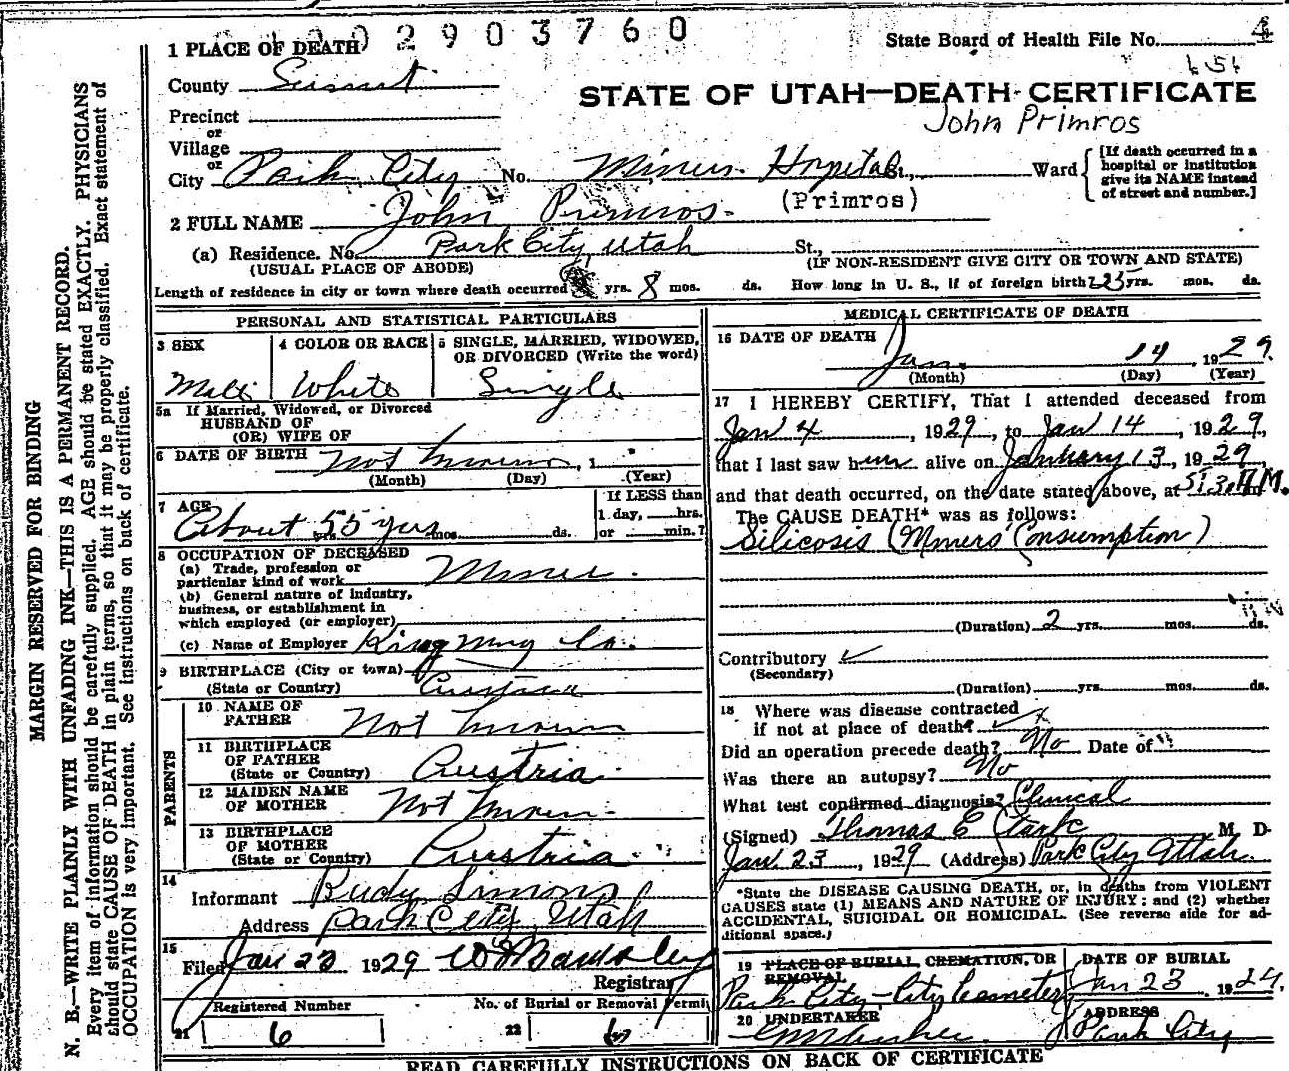 2903760
State Board of Health File No. 4
1 PLACE OF DEATH
County Summit
STATE OF UTAH—DEATH CERTIFICATE
John Primros
Precinct
or
Village
or
City Park City No. Miners Hospital St., Ward
[If death occurred in a
hospital or institution
give its NAME instead
of street and number.]
2 FULL NAME John Primros (Primros)
(a) Residence. No. Park City, Utah St.,
(USUAL PLACE OF ABODE) (IF NON-RESIDENT GIVE CITY OR TOWN AND STATE)
Length of residence in city or town where death occurred yrs. 8 mos. ds. How long in U. S., if of foreign birth? 25 yrs. mos. ds.
PERSONAL AND STATISTICAL PARTICULARS
3 SEX
Male
4 COLOR OR RACE
White
5 SINGLE, MARRIED, WIDOWED,
OR DIVORCED (Write the word)
Single
5a If Married, Widowed, or Divorced
HUSBAND OF
(OR) WIFE OF
6 DATE OF BIRTH Not Known, 1
(Month) (Day) (Year)
7 AGE
About 55 yrs mos. ds.
If LESS than
1 day, hrs.
or min.?
8 OCCUPATION OF DECEASED
(a) Trade, profession or
particular kind of work Miner.
(b) General nature of industry,
business, or establishment in
which employed (or employer)
(c) Name of Employer King Mng Co.
9 BIRTHPLACE (City or town)
(State or Country) Austria
PARENTS
10 NAME OF
FATHER Not Known
11 BIRTHPLACE
OF FATHER
(State or Country) Austria
12 MAIDEN NAME
OF MOTHER Not Known
13 BIRTHPLACE
OF MOTHER
(State or Country) Austria
14
Informant Rudy Simons
Address Park City, Utah
15
Filed Jan 23 1929
Registrar
Registered Number No. of Burial or Removal Permit
21 6 22 6
MEDICAL CERTIFICATE OF DEATH
16 DATE OF DEATH
Jan. 14, 1929.
(Month) (Day) (Year)
17 I HEREBY CERTIFY, That I attended deceased from
Jan 4, 1929, to Jan 14, 1929,
that I last saw him alive on January 13, 1929,
and that death occurred, on the date stated above, at 5:30 M.
The CAUSE DEATH* was as follows:
Silicosis (Miners' Consumption)
(Duration) 2 yrs. mos. ds.
Contributory
(Secondary)
(Duration) yrs. mos. ds.
18 Where was disease contracted
if not at place of death?
Did an operation precede death? No Date of
Was there an autopsy? No
What test confirmed diagnosis? Clinical
(Signed) Thomas E Clark M D
Jan 23, 1929 (Address) Park City Utah.
*State the DISEASE CAUSING DEATH, or, in deaths from VIOLENT
CAUSES state (1) MEANS AND NATURE OF INJURY; and (2) whether
ACCIDENTAL, SUICIDAL OR HOMICIDAL. (See reverse side for ad-
ditional space.)
19 PLACE OF BURIAL, CREMATION, OR
REMOVAL
Park City—City Cemetery
DATE OF BURIAL
Jan 23, 1924.
20 UNDERTAKER
ADDRESS
Park City
READ CAREFULLY INSTRUCTIONS ON BACK OF CERTIFICATE
MARGIN RESERVED FOR BINDING
N. B.—WRITE PLAINLY WITH UNFADING INK—THIS IS A PERMANENT RECORD.
Every item of information should be carefully supplied. AGE should be stated EXACTLY. PHYSICIANS
should state CAUSE OF DEATH in plain terms, so that it may be properly classified. Exact statement of
OCCUPATION is very important. See instructions on back of certificate.